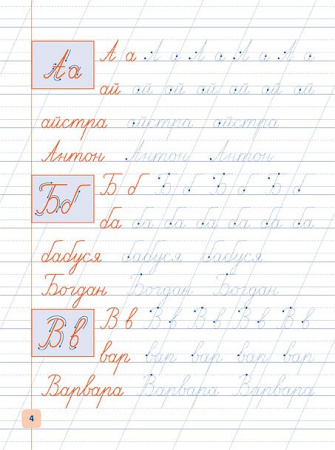 Аа А а А а А а А а А а
ай ай ай ай ай ай ай
айстра айстра айстра
Антон Антон Антон
Бб Б б Б б Б б Б б
ба ба ба ба ба ба ба
бабуся бабуся бабуся
Богдан Богдан Богдан
Вв В в В в В в В в В в
вар вар вар вар вар
Варвара Варвара Варвара
4